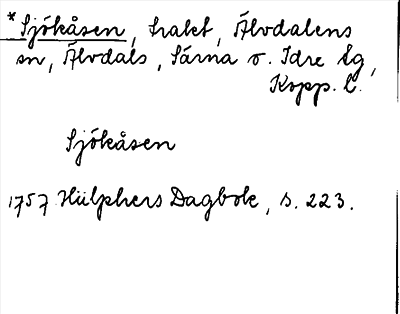 *Sjökåsen, trakt, Älvdalens
sn, Älvdals, Särna o. Idre tg,
Kopp. l.
Sjökåsen
1757 Hülphers Dagbok, s. 223.